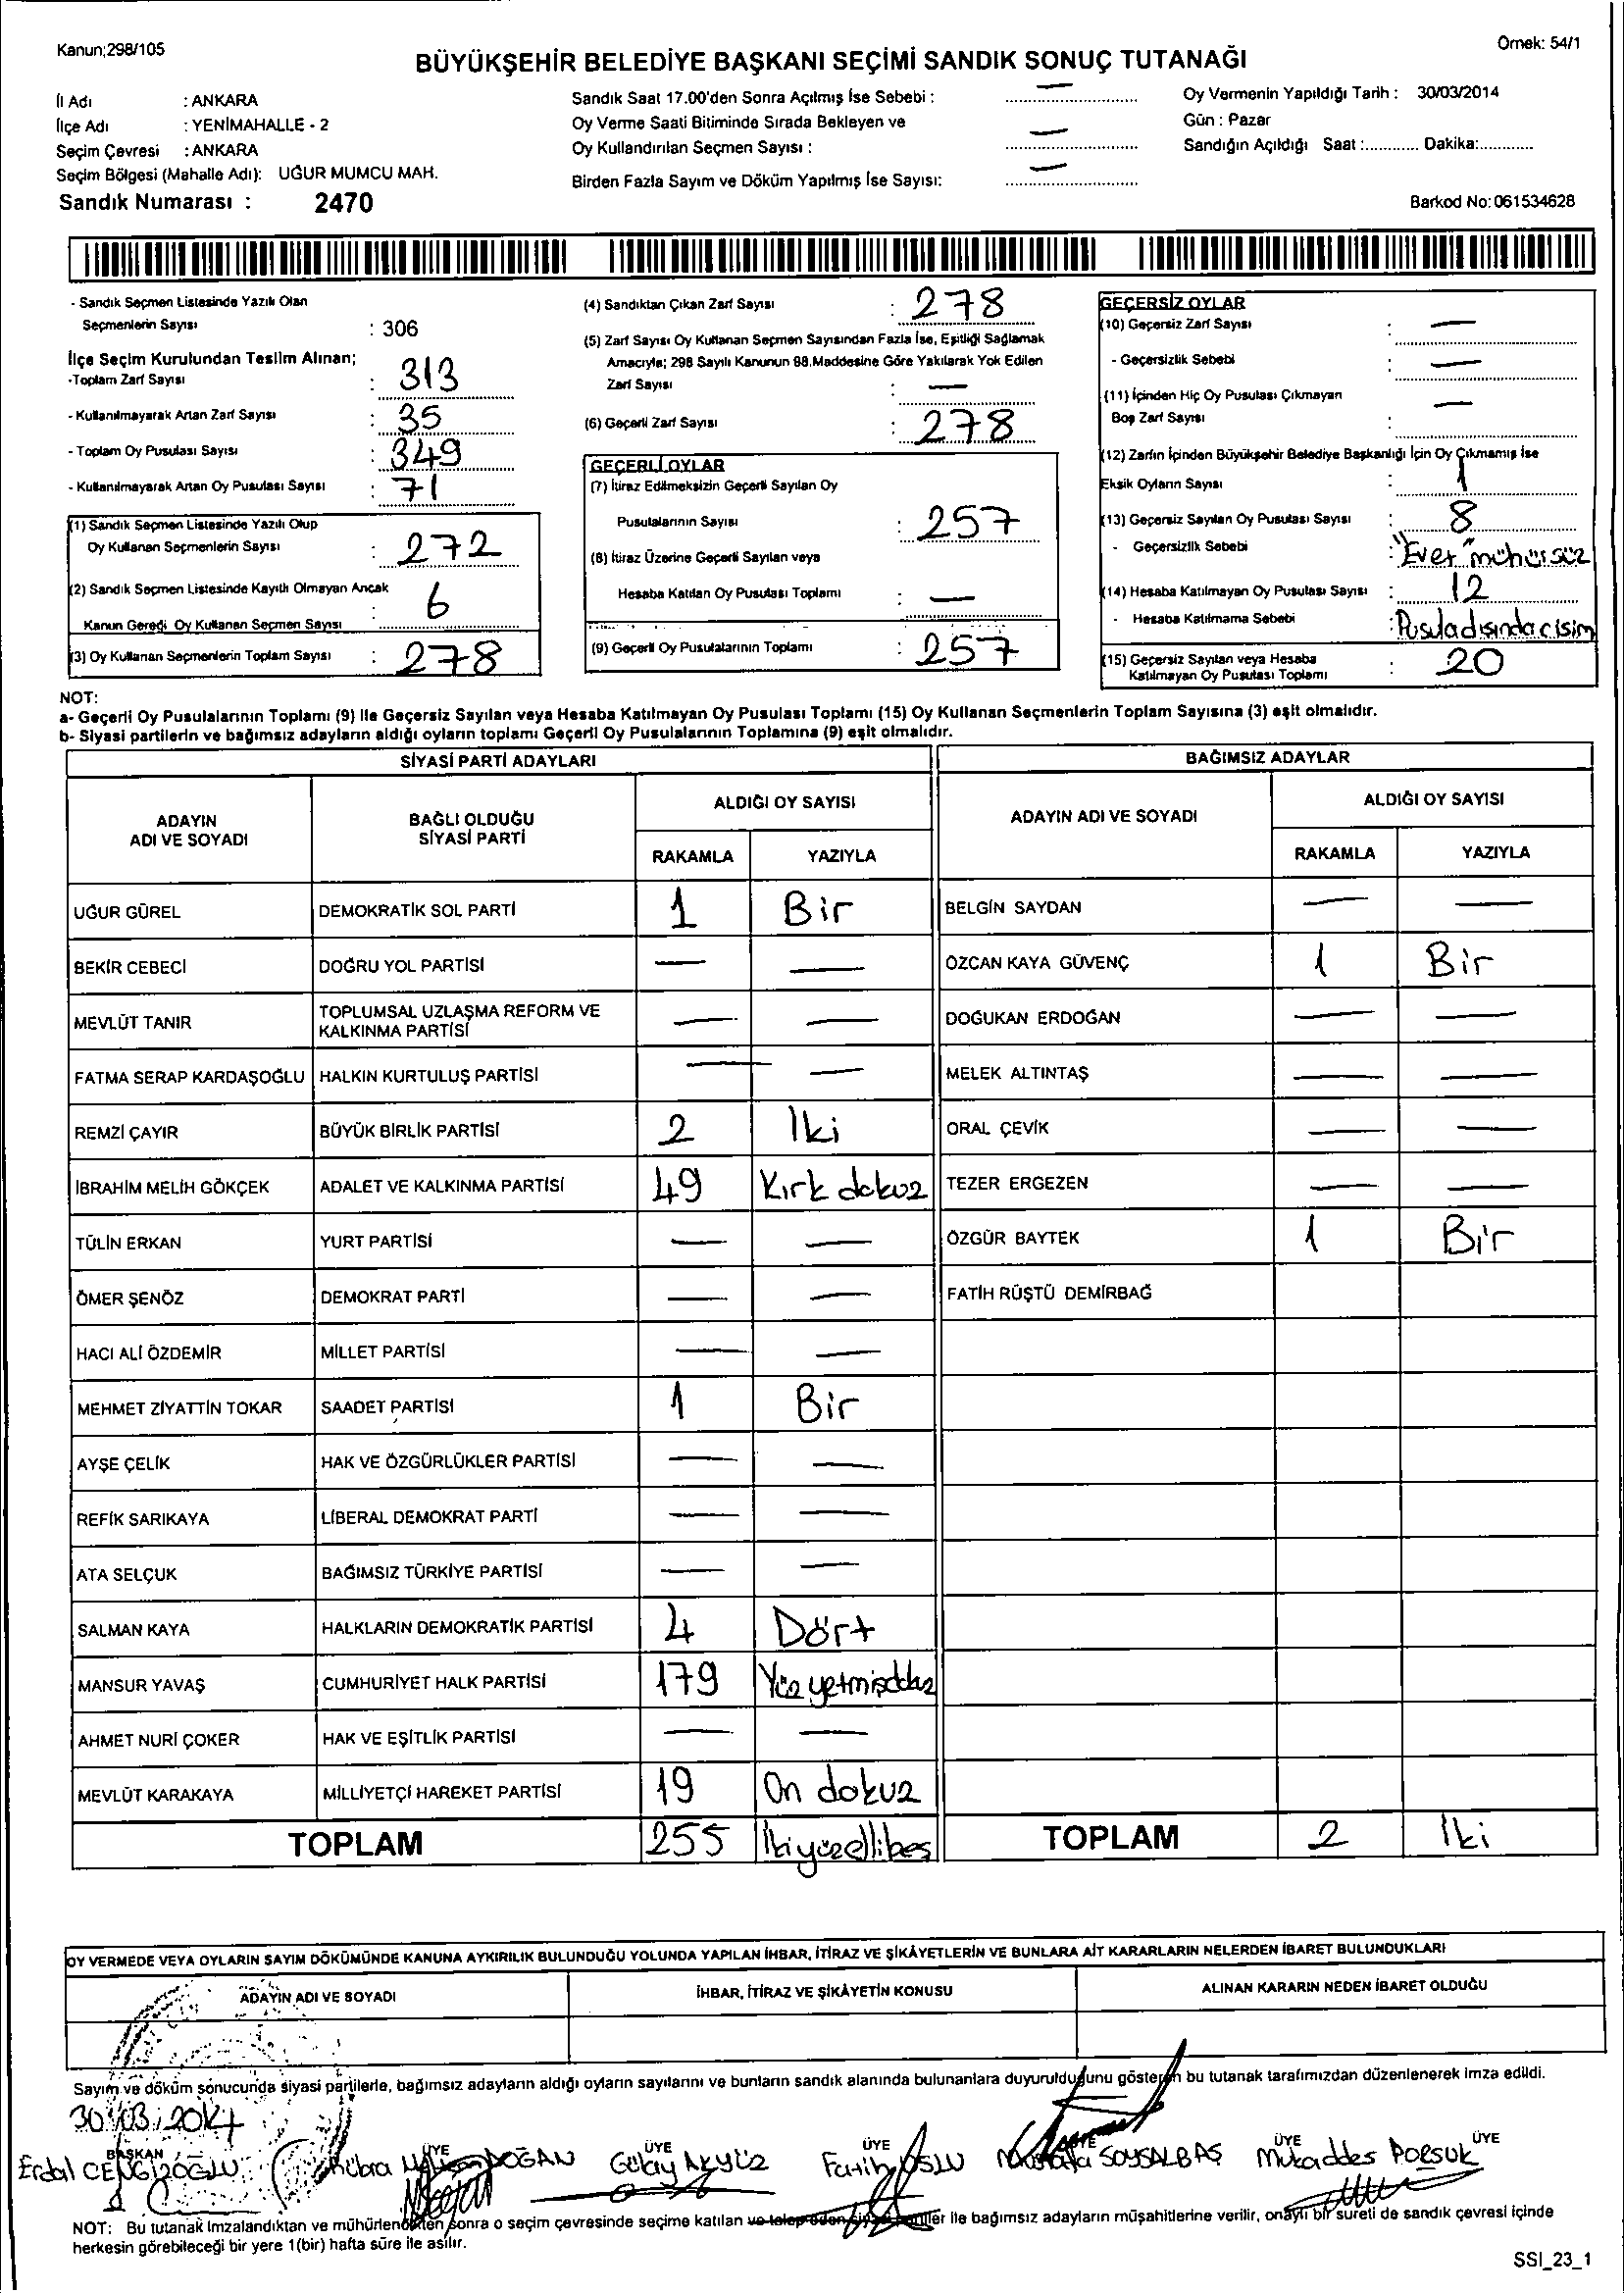 Kanun;298/105
Örnek: 54/1
BÜYÜKŞEHİR BELEDİYE BAŞKANI SEÇİMİ SANDIK SONUÇ TUTANAĞI
İl Adı : ANKARA
İlçe Adı : YENİMAHALLE - 2
Seçim Çevresi : ANKARA
Seçim Bölgesi (Mahalle Adı): UĞUR MUMCU MAH.
Sandık Numarası : 2470
Sandık Saat 17.00'den Sonra Açılmış İse Sebebi : —
Oy Verme Saati Bitiminde Sırada Bekleyen ve
Oy Kullandırılan Seçmen Sayısı : —
Birden Fazla Sayım ve Döküm Yapılmış İse Sayısı: —
Oy Vermenin Yapıldığı Tarih : 30/03/2014
Gün : Pazar
Sandığın Açıldığı Saat :............ Dakika:............
Barkod No: 061534628
- Sandık Seçmen Listesinde Yazılı Olan
Seçmenlerin Sayısı : 306
İlçe Seçim Kurulundan Teslim Alınan;
-Toplam Zarf Sayısı : 313
- Kullanılmayarak Artan Zarf Sayısı : 35
- Toplam Oy Pusulası Sayısı : 349
- Kullanılmayarak Artan Oy Pusulası Sayısı : 71
(1) Sandık Seçmen Listesinde Yazılı Olup
Oy Kullanan Seçmenlerin Sayısı : 272
(2) Sandık Seçmen Listesinde Kayıtlı Olmayan Ancak
Kanun Gereği Oy Kullanan Seçmen Sayısı : 6
(3) Oy Kullanan Seçmenlerin Toplam Sayısı : 278
(4) Sandıktan Çıkan Zarf Sayısı : 278
(5) Zarf Sayısı Oy Kullanan Seçmen Sayısından Fazla İse, Eşitliği Sağlamak
Amacıyla; 298 Sayılı Kanunun 98.Maddesine Göre Yakılarak Yok Edilen
Zarf Sayısı : —
(6) Geçerli Zarf Sayısı : 278
GEÇERLİ OYLAR
(7) İtiraz Edilmeksizin Geçerli Sayılan Oy
Pusulalarının Sayısı : 257
(8) İtiraz Üzerine Geçerli Sayılan veya
Hesaba Katılan Oy Pusulası Toplamı : —
(9) Geçerli Oy Pusulalarının Toplamı : 257
GEÇERSİZ OYLAR
(10) Geçersiz Zarf Sayısı : —
- Geçersizlik Sebebi : —
(11) İçinden Hiç Oy Pusulası Çıkmayan
Boş Zarf Sayısı : —
(12) Zarfın İçinden Büyükşehir Belediye Başkanlığı İçin Oy Çıkmamış İse
Eksik Oyların Sayısı : 1
(13) Geçersiz Sayılan Oy Pusulası Sayısı : 8
- Geçersizlik Sebebi : "Evet" mühürsüz
(14) Hesaba Katılmayan Oy Pusulası Sayısı : 12
- Hesaba Katılmama Sebebi : Pusula dışında cisim
(15) Geçersiz Sayılan veya Hesaba
Katılmayan Oy Pusulası Toplamı : 20
NOT:
a- Geçerli Oy Pusulalarının Toplamı (9) ile Geçersiz Sayılan veya Hesaba Katılmayan Oy Pusulası Toplamı (15) Oy Kullanan Seçmenlerin Toplam Sayısına (3) eşit olmalıdır.
b- Siyasi partilerin ve bağımsız adayların aldığı oyların toplamı Geçerli Oy Pusulalarının Toplamına (9) eşit olmalıdır.
SİYASİ PARTİ ADAYLARI BAĞIMSIZ ADAYLAR
ADAYIN
ADI VE SOYADI
BAĞLI OLDUĞU
SİYASİ PARTİ
ALDIĞI OY SAYISI
RAKAMLA YAZIYLA
ADAYIN ADI VE SOYADI
ALDIĞI OY SAYISI
RAKAMLA YAZIYLA
UĞUR GÜREL DEMOKRATİK SOL PARTİ 1 Bir BELGİN SAYDAN — —
BEKİR CEBECİ DOĞRU YOL PARTİSİ — — ÖZCAN KAYA GÜVENÇ 1 Bir
MEVLÜT TANIR TOPLUMSAL UZLAŞMA REFORM VE
KALKINMA PARTİSİ — — DOĞUKAN ERDOĞAN — —
FATMA SERAP KARDAŞOĞLU HALKIN KURTULUŞ PARTİSİ — — MELEK ALTINTAŞ — —
REMZİ ÇAYIR BÜYÜK BİRLİK PARTİSİ 2 İki ORAL ÇEVİK — —
İBRAHİM MELİH GÖKÇEK ADALET VE KALKINMA PARTİSİ 49 Kırk dokuz TEZER ERGEZEN — —
TÜLİN ERKAN YURT PARTİSİ — — ÖZGÜR BAYTEK 1 Bir
ÖMER ŞENÖZ DEMOKRAT PARTİ — — FATİH RÜŞTÜ DEMİRBAĞ
HACI ALİ ÖZDEMİR MİLLET PARTİSİ — —
MEHMET ZİYATTİN TOKAR SAADET PARTİSİ 1 Bir
AYŞE ÇELİK HAK VE ÖZGÜRLÜKLER PARTİSİ — —
REFİK SARIKAYA LİBERAL DEMOKRAT PARTİ — —
ATA SELÇUK BAĞIMSIZ TÜRKİYE PARTİSİ — —
SALMAN KAYA HALKLARIN DEMOKRATİK PARTİSİ 4 Dört
MANSUR YAVAŞ CUMHURİYET HALK PARTİSİ 179 Yüz yetmişdokuz
AHMET NURİ ÇOKER HAK VE EŞİTLİK PARTİSİ — —
MEVLÜT KARAKAYA MİLLİYETÇİ HAREKET PARTİSİ 19 On dokuz
TOPLAM 255 İkiyüzellibeş TOPLAM 2 İki
OY VERMEDE VEYA OYLARIN SAYIM DÖKÜMÜNDE KANUNA AYKIRILIK BULUNDUĞU YOLUNDA YAPILAN İHBAR, İTİRAZ VE ŞİKÂYETLERİN VE BUNLARA AİT KARARLARIN NELERDEN İBARET BULUNDUKLARI
ADAYIN ADI VE SOYADI İHBAR, İTİRAZ VE ŞİKÂYETİN KONUSU ALINAN KARARIN NEDEN İBARET OLDUĞU
Sayım ve döküm sonucunda siyasi partilerle, bağımsız adayların aldığı oyların sayılarını ve bunların sandık alanında bulunanlara duyurulduğunu gösteren bu tutanak tarafımızdan düzenlenerek imza edildi.
30/03/2014
BAŞKAN ÜYE ÜYE ÜYE ÜYE ÜYE ÜYE
Erdal CENGİZOĞLU Kübra DOĞAN Gülay AKYÜZ Fatih USLU Mustafa SOYSALBAŞ Mukaddes PORSUK
NOT: Bu tutanak imzalandıktan ve mühürlendikten sonra o seçim çevresinde seçime katılan ve talep eden siyasi partiler ile bağımsız adayların müşahitlerine verilir, onaylı bir sureti de sandık çevresi içinde
herkesin görebileceği bir yere 1(bir) hafta süre ile asılır.
SSI_23_1